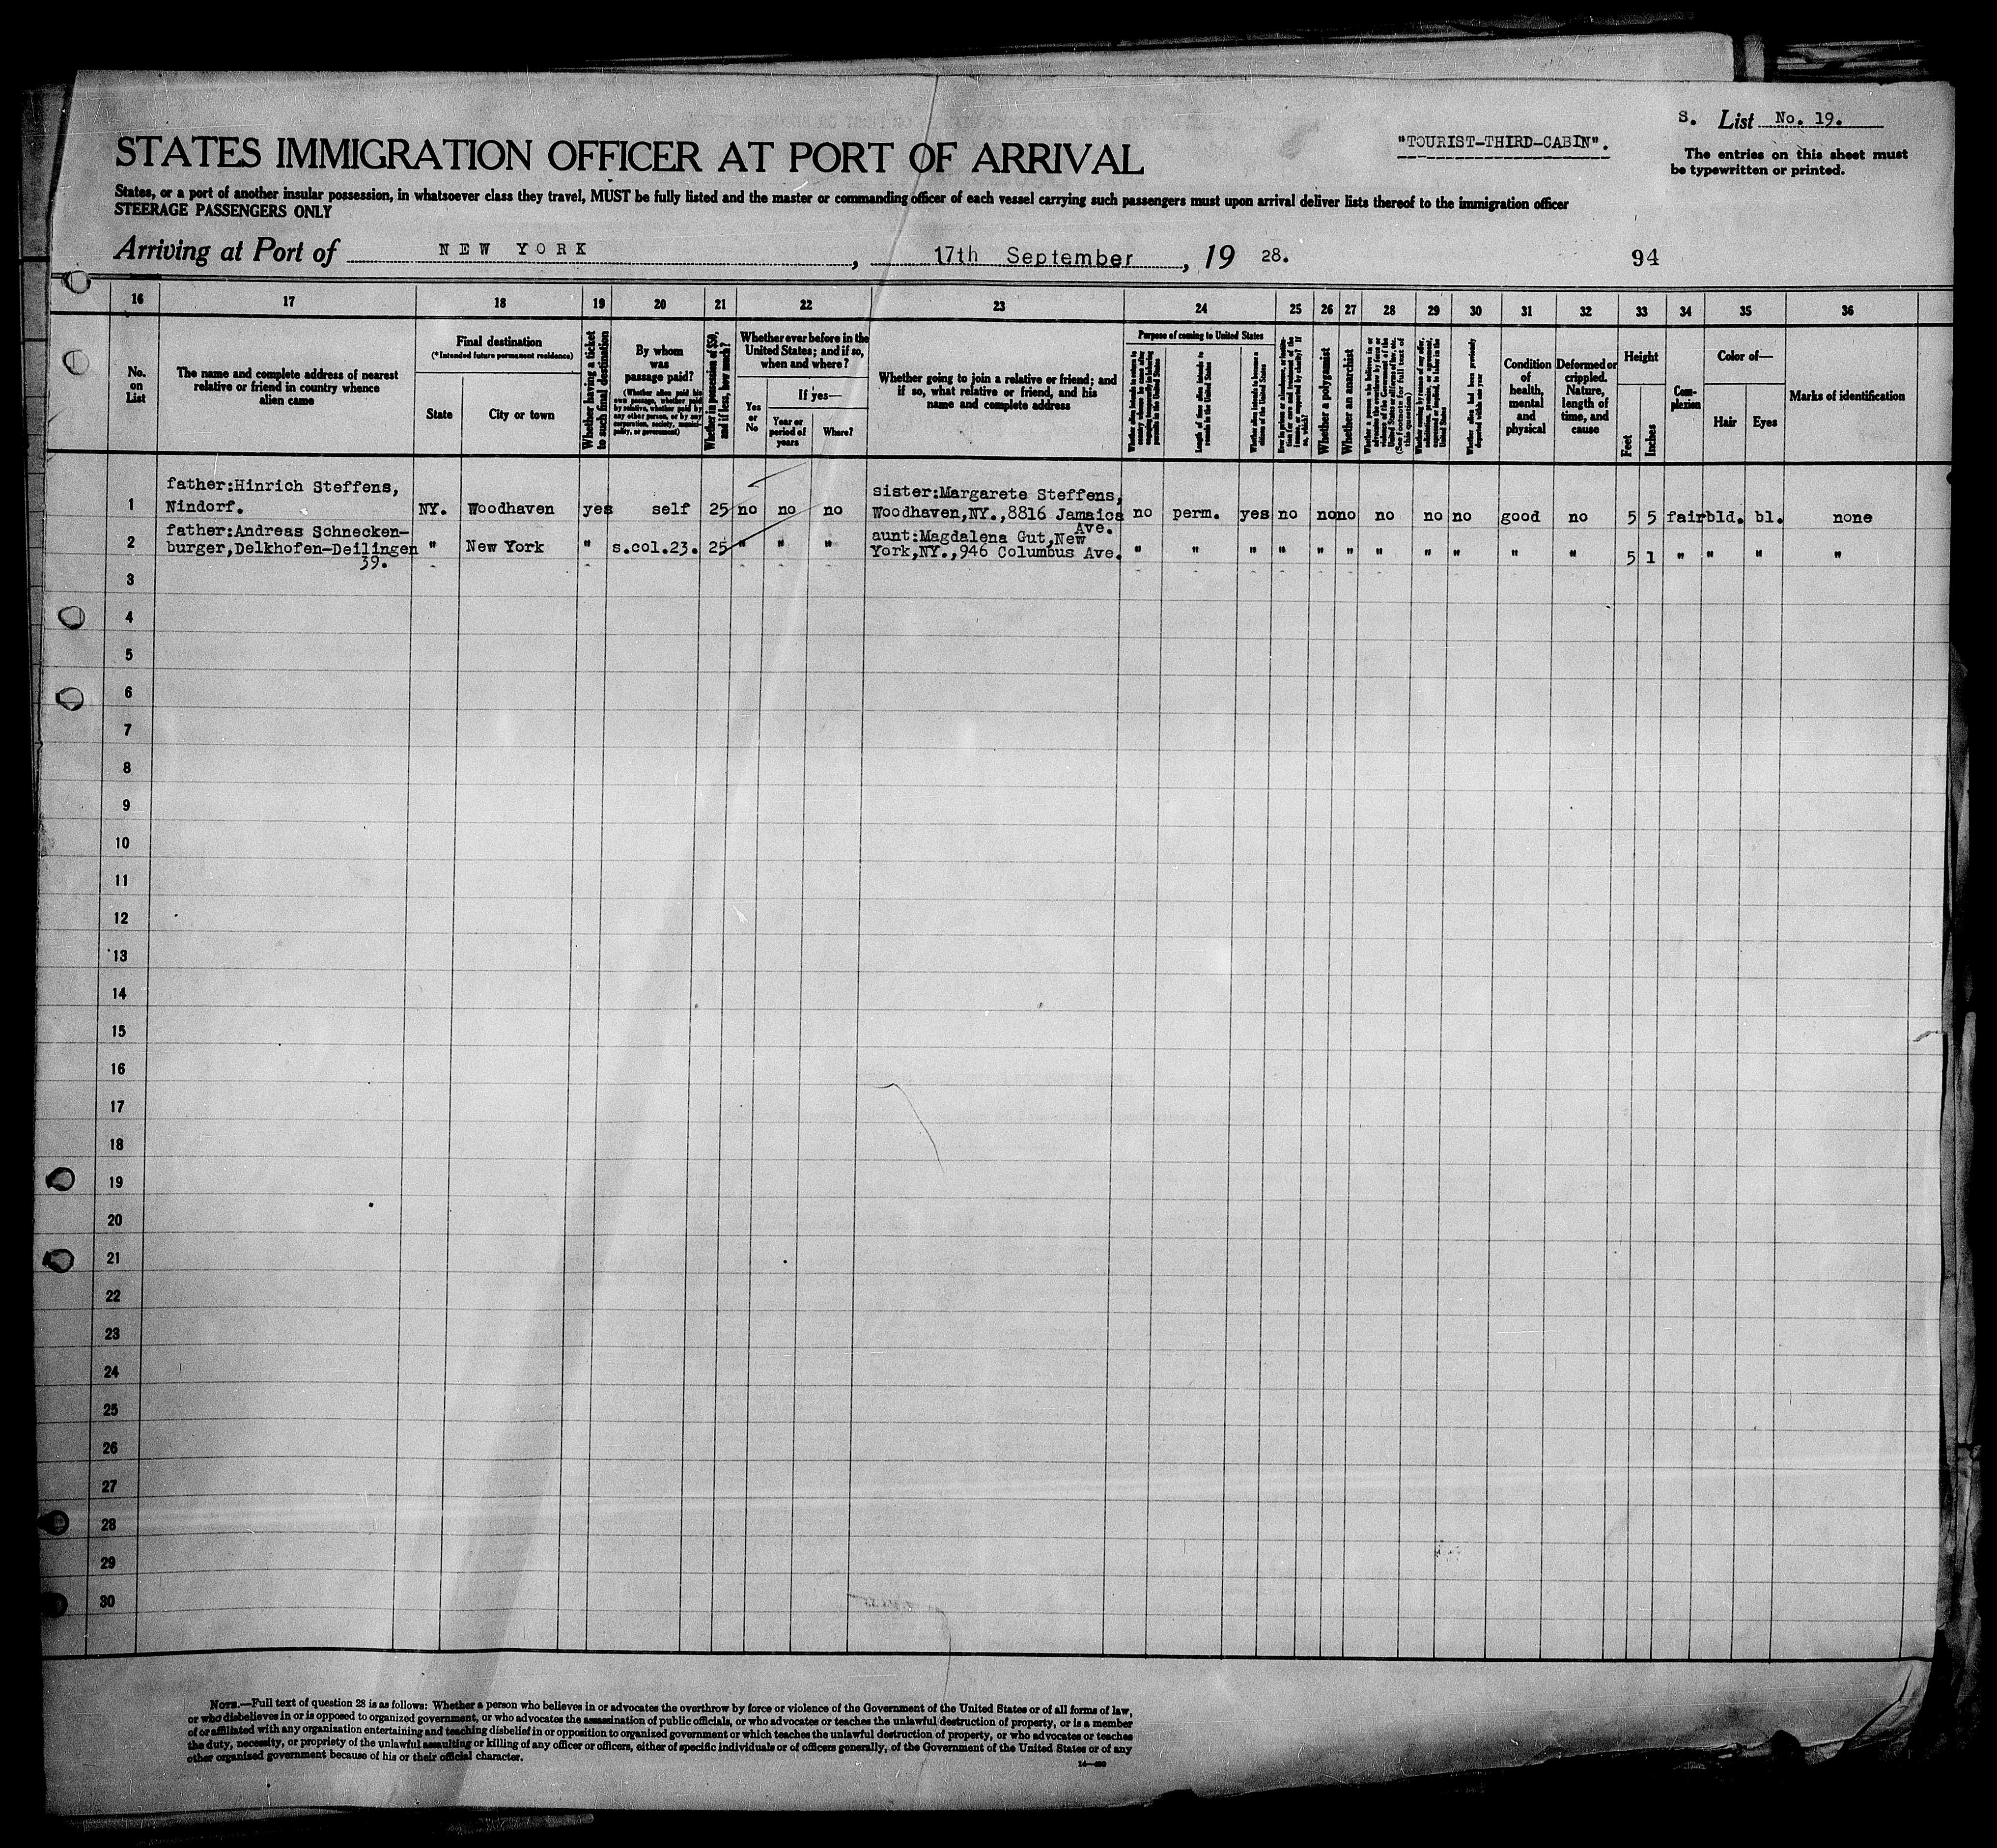 S. List No. 19.
"TOURIST-THIRD-CABIN".
The entries on this sheet must
be typewritten or printed.
STATES IMMIGRATION OFFICER AT PORT OF ARRIVAL
States, or a port of another insular possession, in whatsoever class they travel, MUST be fully listed and the master or commanding officer of each vessel carrying such passengers must upon arrival deliver lists thereof to the immigration officer
STEERAGE PASSENGERS ONLY
Arriving at Port of NEW YORK, 17th September, 19 28.
94
16 17 18 19 20 21 22 23 24 25 26 27 28 29 30 31 32 33 34 35 36
No.
on
List
The name and complete address of nearest
relative or friend in country whence
alien came
Final destination
(*Intended future permanent residence)
State
City or town
Whether having a ticket
to such final destination
By whom
was
passage paid?
(Whether alien paid his
own passage, whether paid
by relative, whether paid by
any other person, or by any
corporation, society, munici-
pality, or government)
Whether in possession of $50,
and if less, how much?
Whether ever before in the
United States; and if so,
when and where?
Yes
or
No
If yes—
Year or
period of
years
Where?
Whether going to join a relative or friend; and
if so, what relative or friend, and his
name and complete address
Purpose of coming to United States
Length of time alien intends to
remain in the United States
Whether alien intends to become a
citizen of the United States
Whether a polygamist
Whether an anarchist
Whether alien had been previously
deported within one year
Condition
of
health,
mental
and
physical
Deformed or
crippled.
Nature,
length of
time, and
cause
Height
Feet
Inches
Com-
plexion
Color of—
Hair
Eyes
Marks of identification
1 father:Hinrich Steffens,
Nindorf. NY. Woodhaven yes self 25 no no no sister:Margarete Steffens,
Woodhaven,NY.,8816 Jamaica
Ave. no perm. yes no no no no no no good no 5 5 fair bld. bl. none
2 father:Andreas Schnecken-
burger,Delkhofen-Deilingen
39. " New York " s.col.23. 25 " " " aunt:Magdalena Gut,New
York,NY.,946 Columbus Ave. " " " " " " " " " " " 5 1 " " " "
3
4
5
6
7
8
9
10
11
12
13
14
15
16
17
18
19
20
21
22
23
24
25
26
27
28
29
30
NOTE.—Full text of question 28 is as follows: Whether a person who believes in or advocates the overthrow by force or violence of the Government of the United States or of all forms of law,
or who disbelieves in or is opposed to organized government, or who advocates the assassination of public officials, or who advocates or teaches the unlawful destruction of property, or is a member
of or affiliated with any organization entertaining and teaching disbelief in or opposition to organized government or which teaches the unlawful destruction of property, or who advocates or teaches
the duty, necessity, or propriety of the unlawful assaulting or killing of any officer or officers, either of specific individuals or of officers generally, of the Government of the United States or of any
other organized government because of his or their official character.